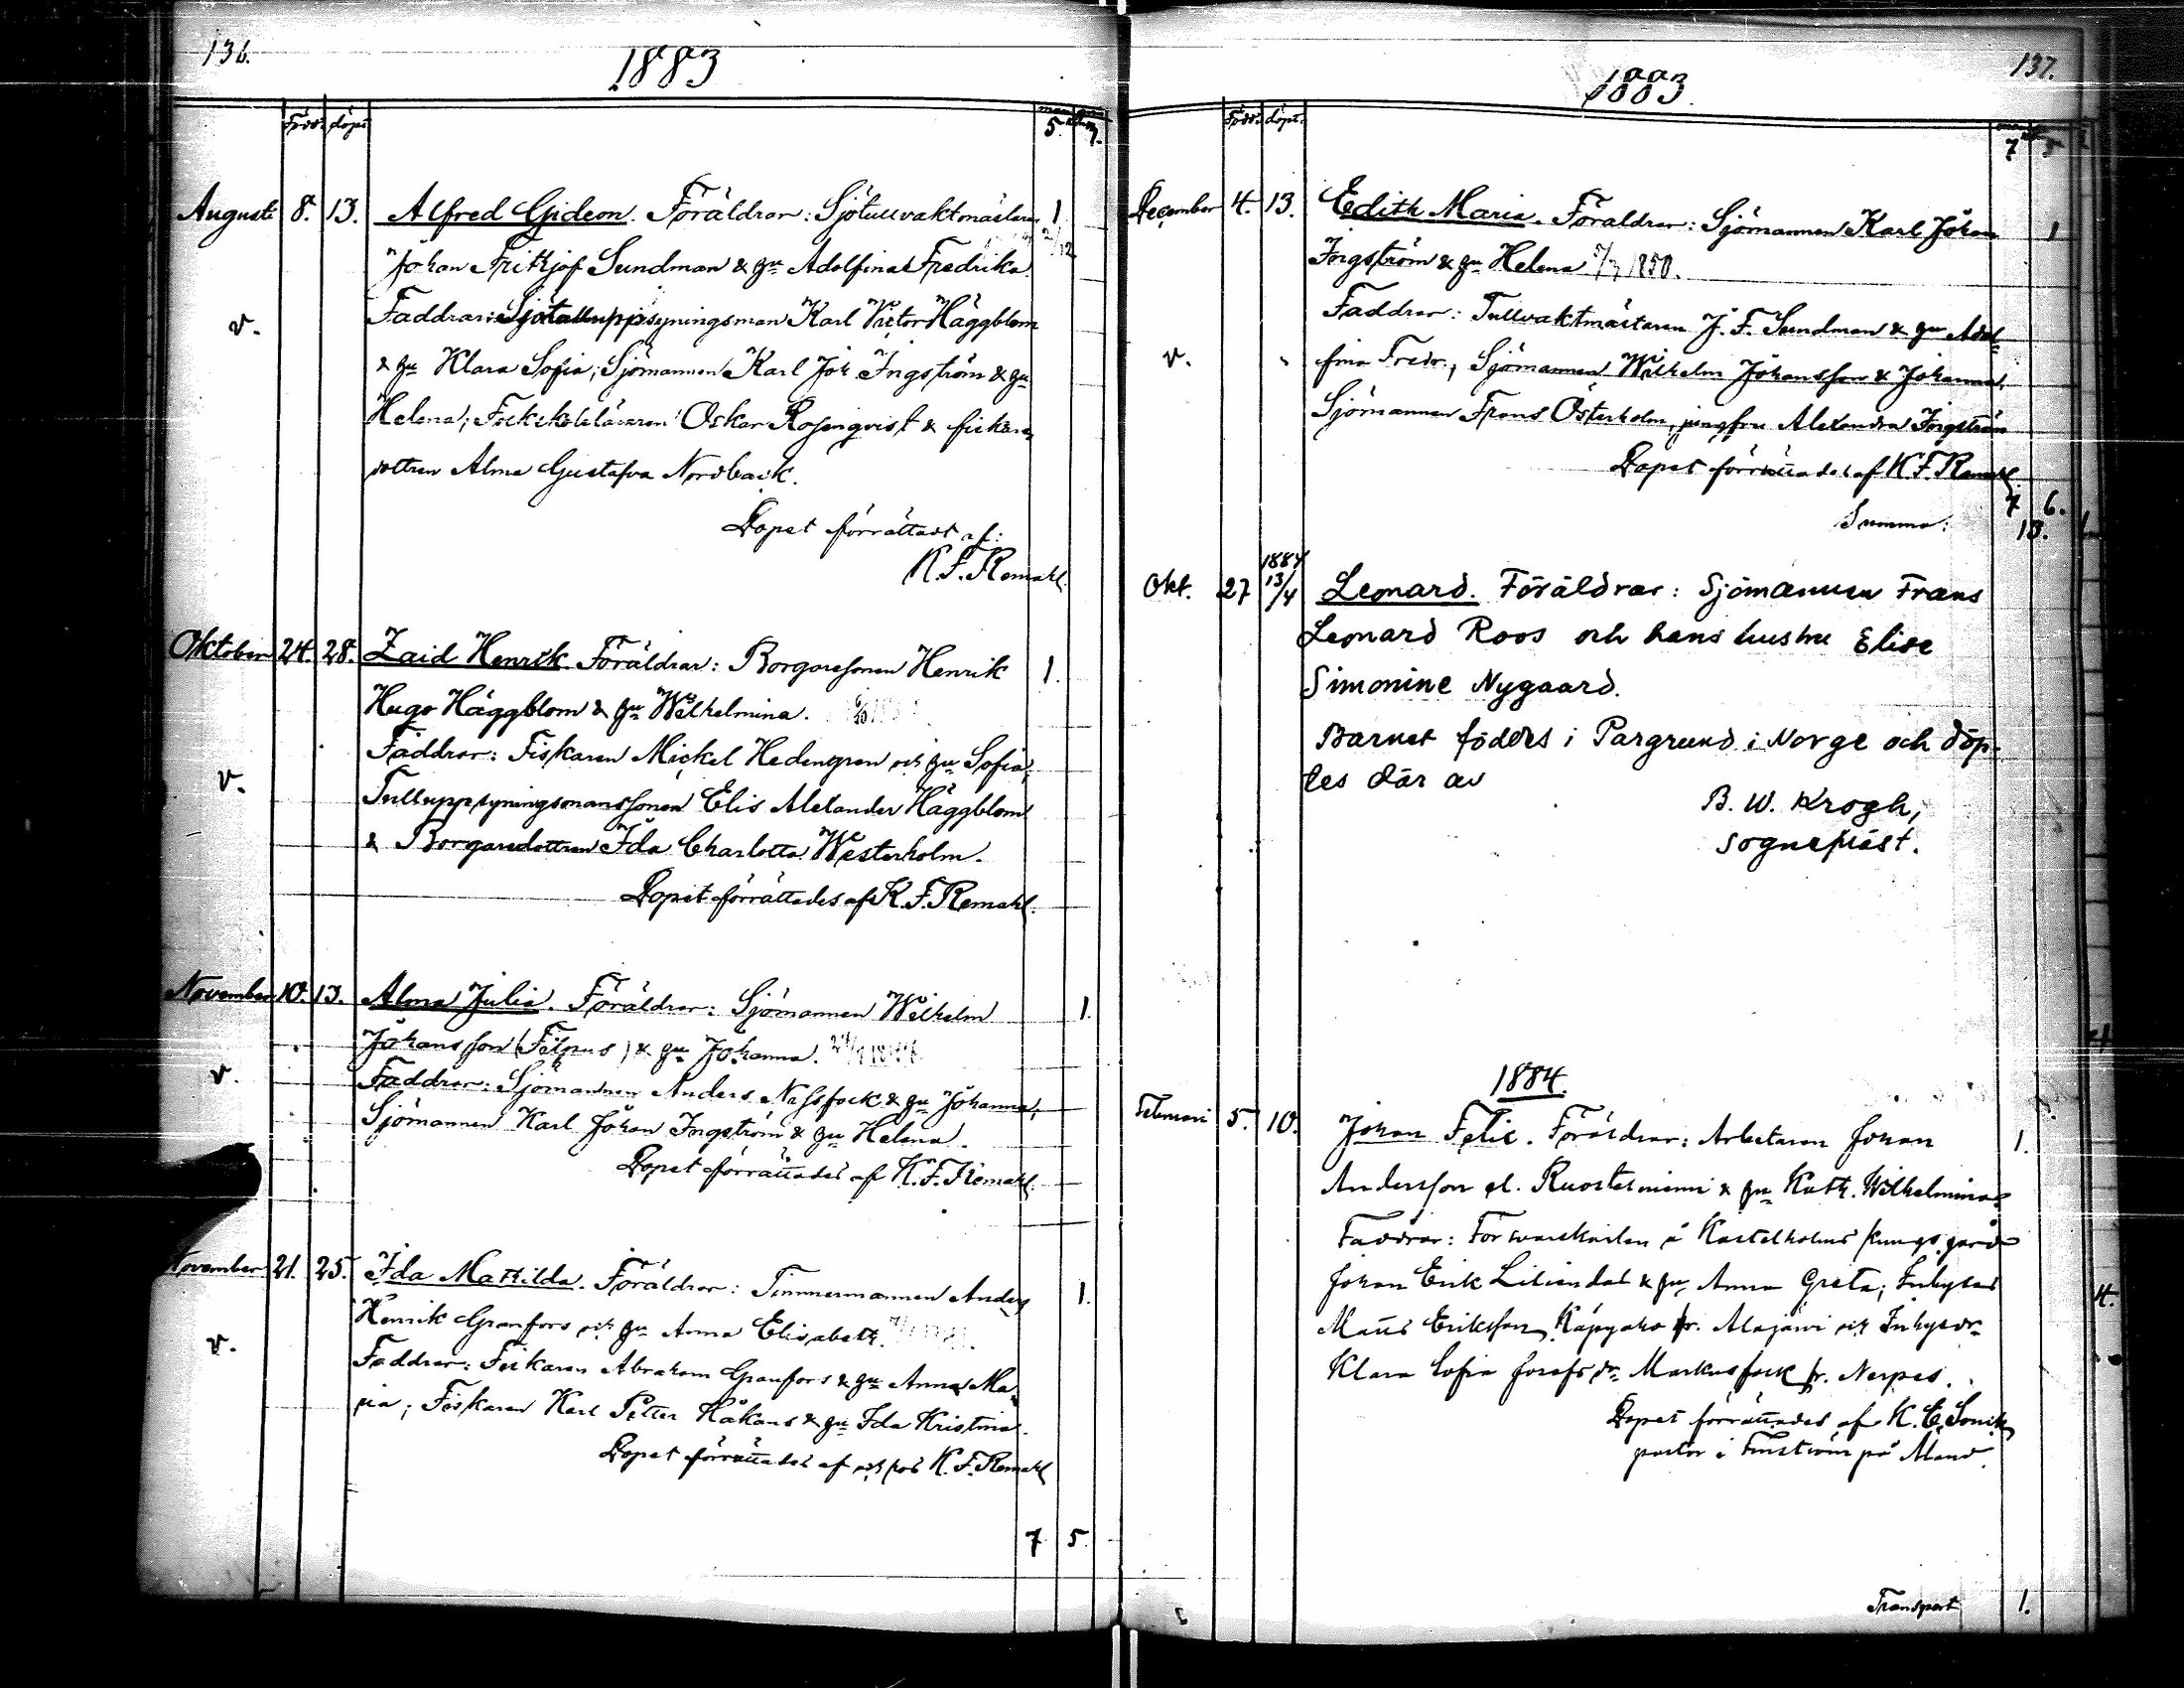 136.
1883
Född. döpt.
man qvin
5. 7.
Augusti 8. 13. Alfred Gideon. Föräldrar: Sjötullvaktmästaren 1
Johan Frithjof Sundman & hu Adolfina Fredrika.
Faddrar: Sjötulluppsyningsman Karl Victor Häggblom
v.
& hu Klara Sofia; Sjömannen Karl Joh Ingström & hu
Helena; Folkskoleläraren Oskar Rosenqvist & fiskare
dottren Alma Gustafva Nordback.
Dopet förrättadt af:
K. F. Remahl.
Oktober 24. 28. Zaid Henrik. Föräldrar: Borgaresonen Henrik 1.
Hugo Häggblom & hu Wilhelmina.
Faddrar: Fiskaren Mickel Hedengren och hu Sofia,
v.
Tulluppsyningsmanssonen Elis Alexander Häggblom
& Borgaredottren Ida Charlotta Westerholm.
Dopet förrättades af K. F. Remahl.
November 10. 13. Alma Julia. Föräldrar: Sjömannen Wilhelm 1.
Johansson (Filpus) & hu Johanna.
v.
Faddrar: Sjömannen Anders Nissfock & hu Johanna,
Sjömannen Karl Johan Ingström & hu Helena.
Dopet förrättades af K. F. Remahl.
November 21. 25. Ida Mathilda. Föräldrar: Timmermannen Anders 1.
Henrik Granfors och hu Anna Elisabeth.
v.
Faddrar: Fiskaren Abraham Granfors & hu Anna Ma-
ria; Fiskaren Karl Petter Håkans & hu Ida Kristina.
Dopet förrättades af K. F. Remahl
7 5
137.
1883.
Född. döpt.
7 5
December 4. 13. Edith Maria. Föräldrar: Sjömannen Karl Johan 1
Ingström & hu Helena 7/7 1850.
Faddrar: Tullvaktmästaren J. F. Sundman & hu Adol-
v.
fina Fredr., Sjömannen Wilhelm Johansson & Johanna,
Sjömannen Frans Österholm, jungfru Alexandra Ingström
Dopet förrättades af K. F. Remahl.
7 6.
Summa: 13.
Okt. 27 1884 13/4 Leonard. Föräldrar: Sjömannen Frans
Leonard Roos och hans hustru Elise
Simonine Nygaard.
Barnet föddes i Pargrund i Norge och döp-
tes där av
B. W. Krogh,
sogneprest.
1884.
Februari 5. 10. Johan Felix. Föräldrar: Arbetaren Johan 1.
Andersson el. Ruostesniemi & hu Kath. Wilhelmina
Faddrar: Försvarskarlen å Kastelholms kungsgård
Johan Erik Liliendal & hu Anna Greta; Inhyses
4.
Matts Eriksson Käpyaho fr. Alajärvi och Inhysdr.
Klara Sofia Josefsdr. Markusfock fr. Nerpes.
Dopet förrättades af K. E.
pastor i Finström på Åland.
Transport 1.